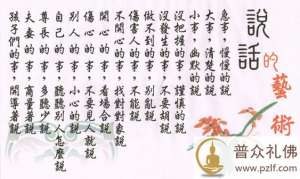 說話的藝術
急事,慢慢的說
大事,清楚的說
小事,幽默的說
沒把握的事,謹慎的說
沒發生的事,不要胡說
做不到的事,別亂說
傷害人的事,不能說
不開心的事,找對對象說
開心的事,看場合說
傷心的事,不要見人就說
別人的事,小心的說
自己的事,聽聽別人怎麼說
尊長的事,多聽少說
夫妻的事,商量著說
孩子們的事,開導著說
普众礼佛
www.pzlf.com